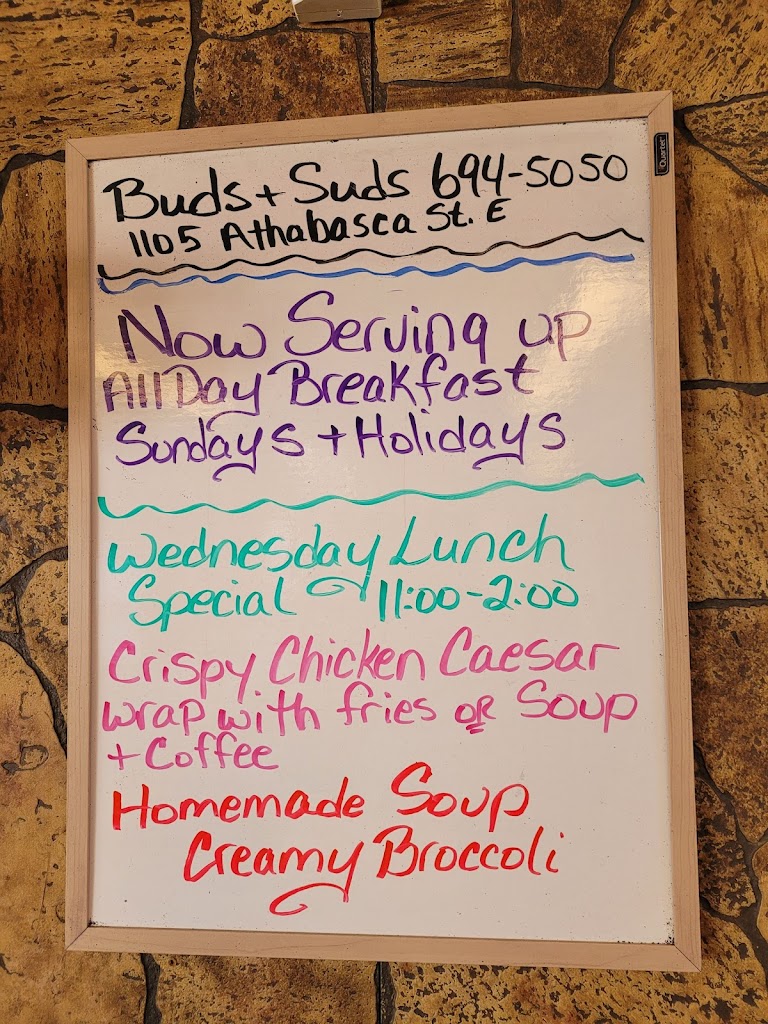 Buds + Suds 694-5050
1105 Athabasca St. E
Quartet
Now Serving up
All Day Breakfast
Sundays + Holidays
Wednesday Lunch
Special 11:00-2:00
Crispy Chicken Caesar
wrap with fries OR Soup
+ Coffee
Homemade Soup
Creamy Broccoli